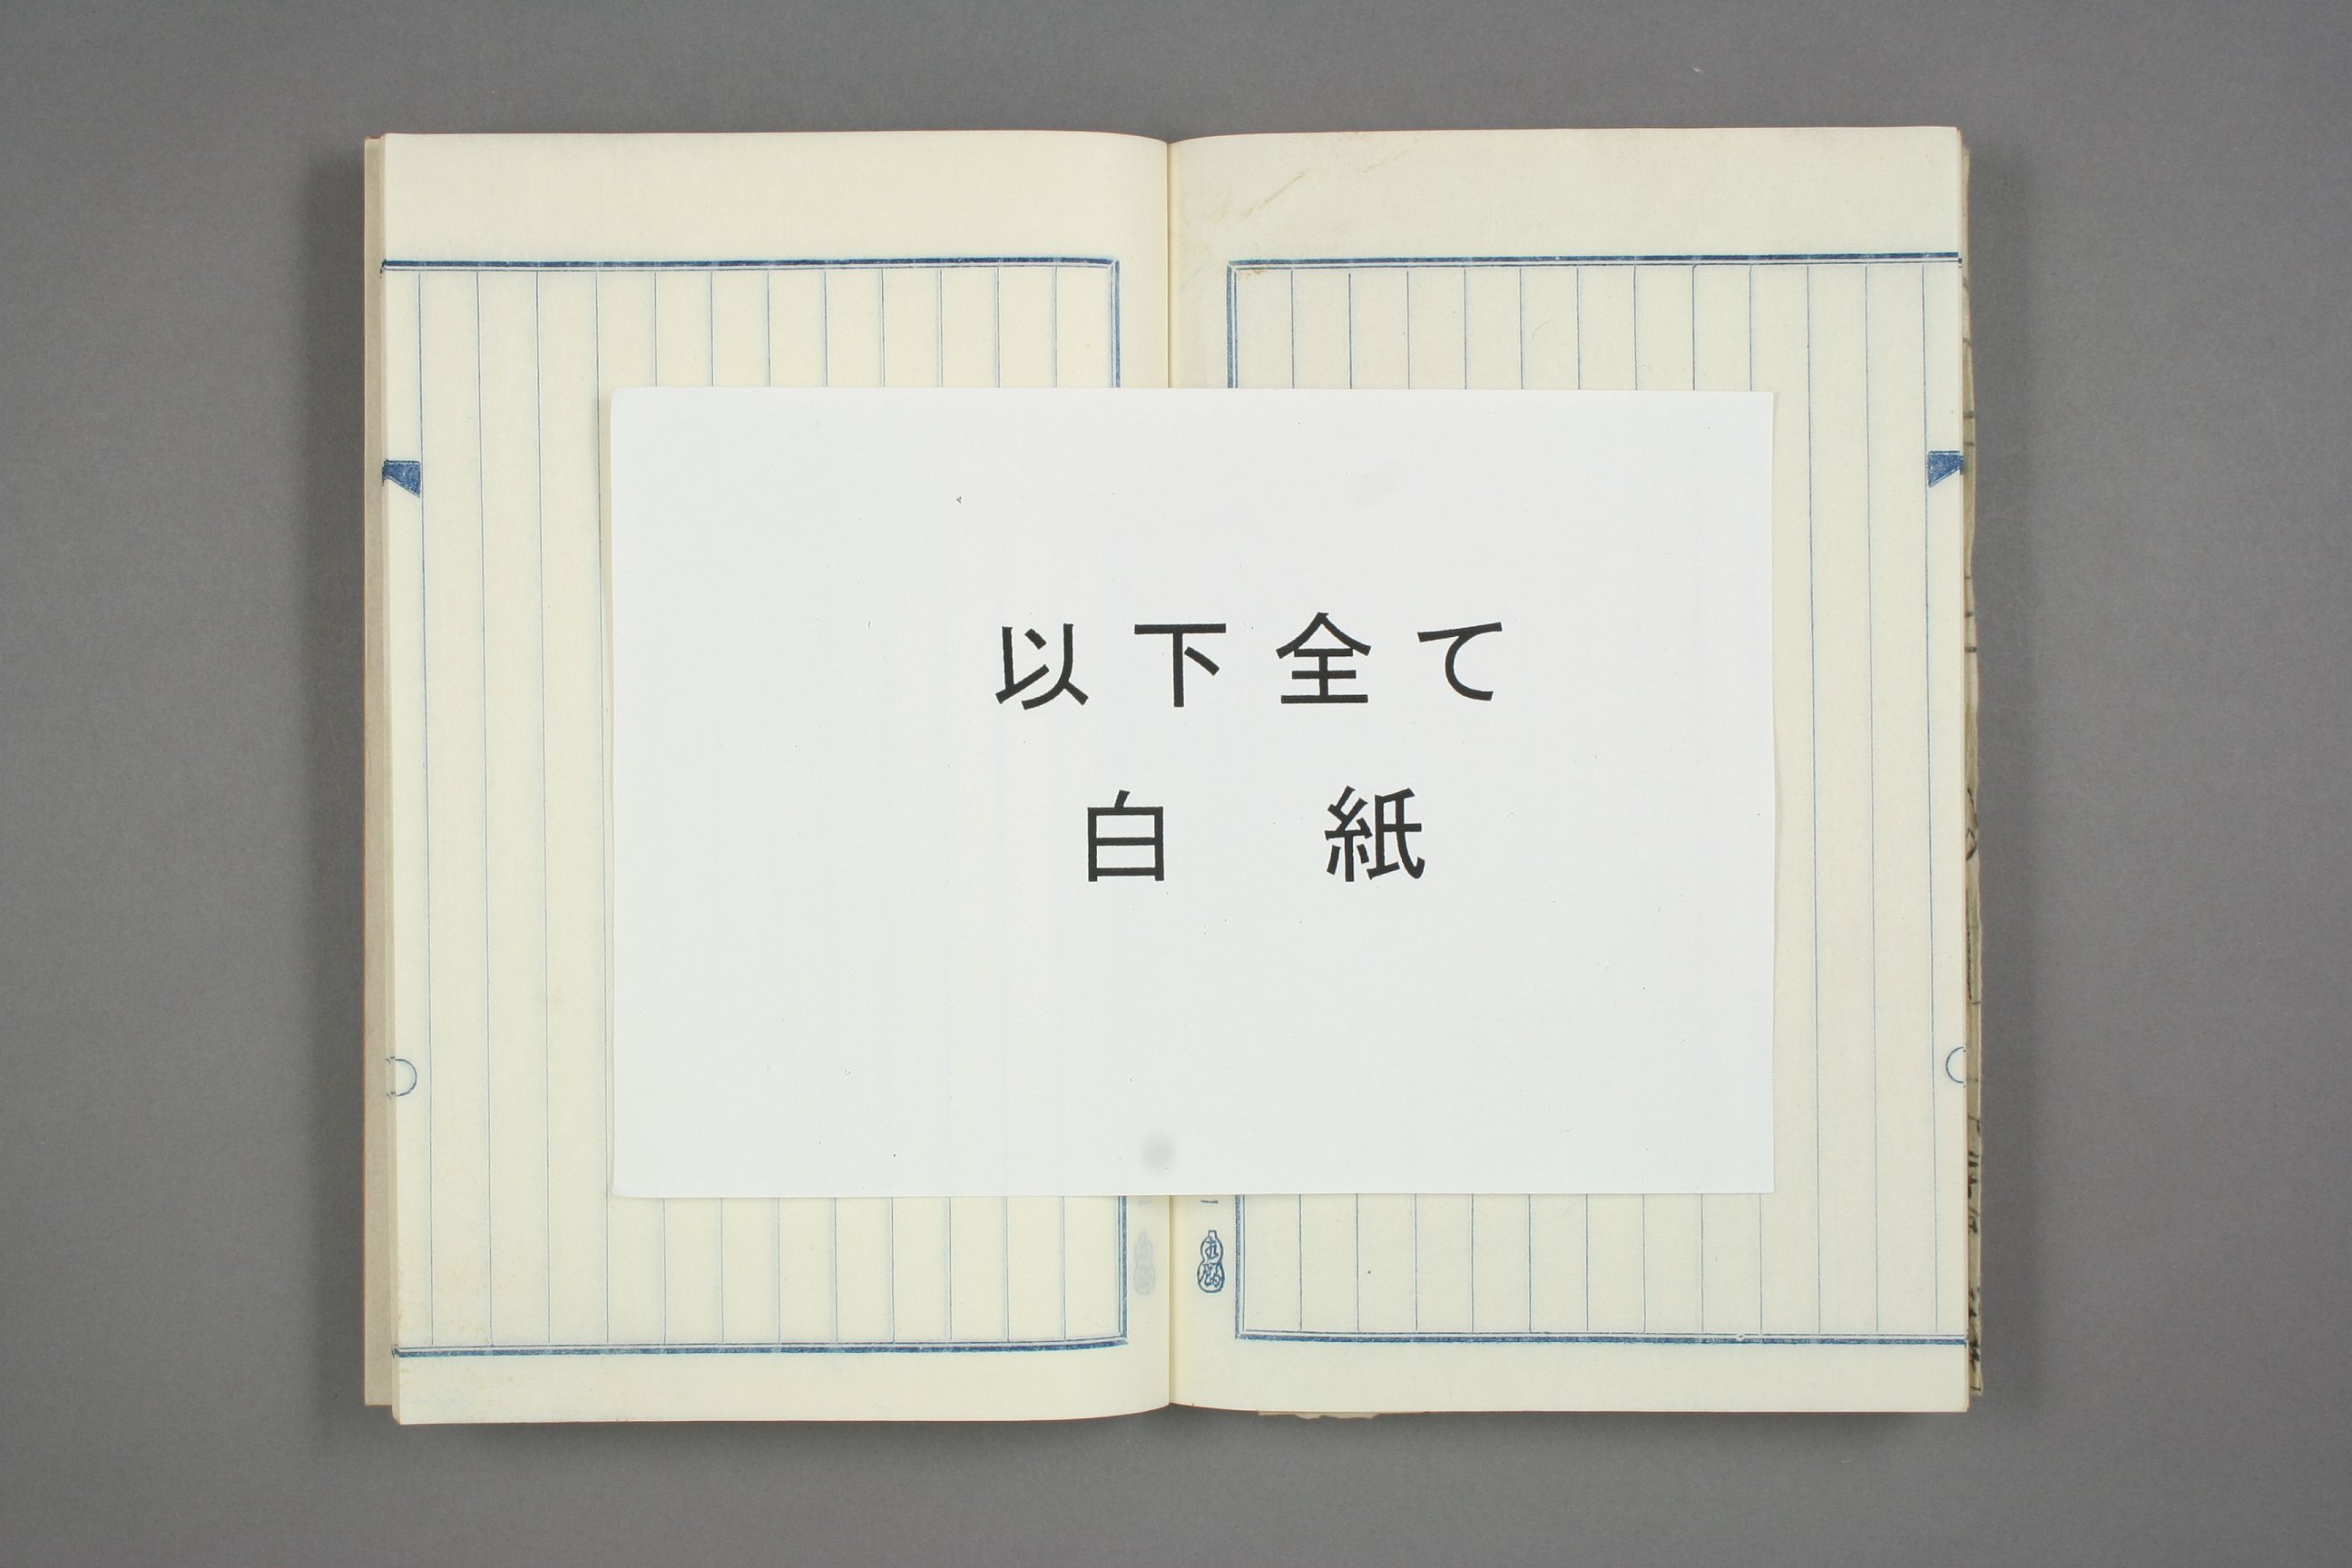 以下全て
白紙